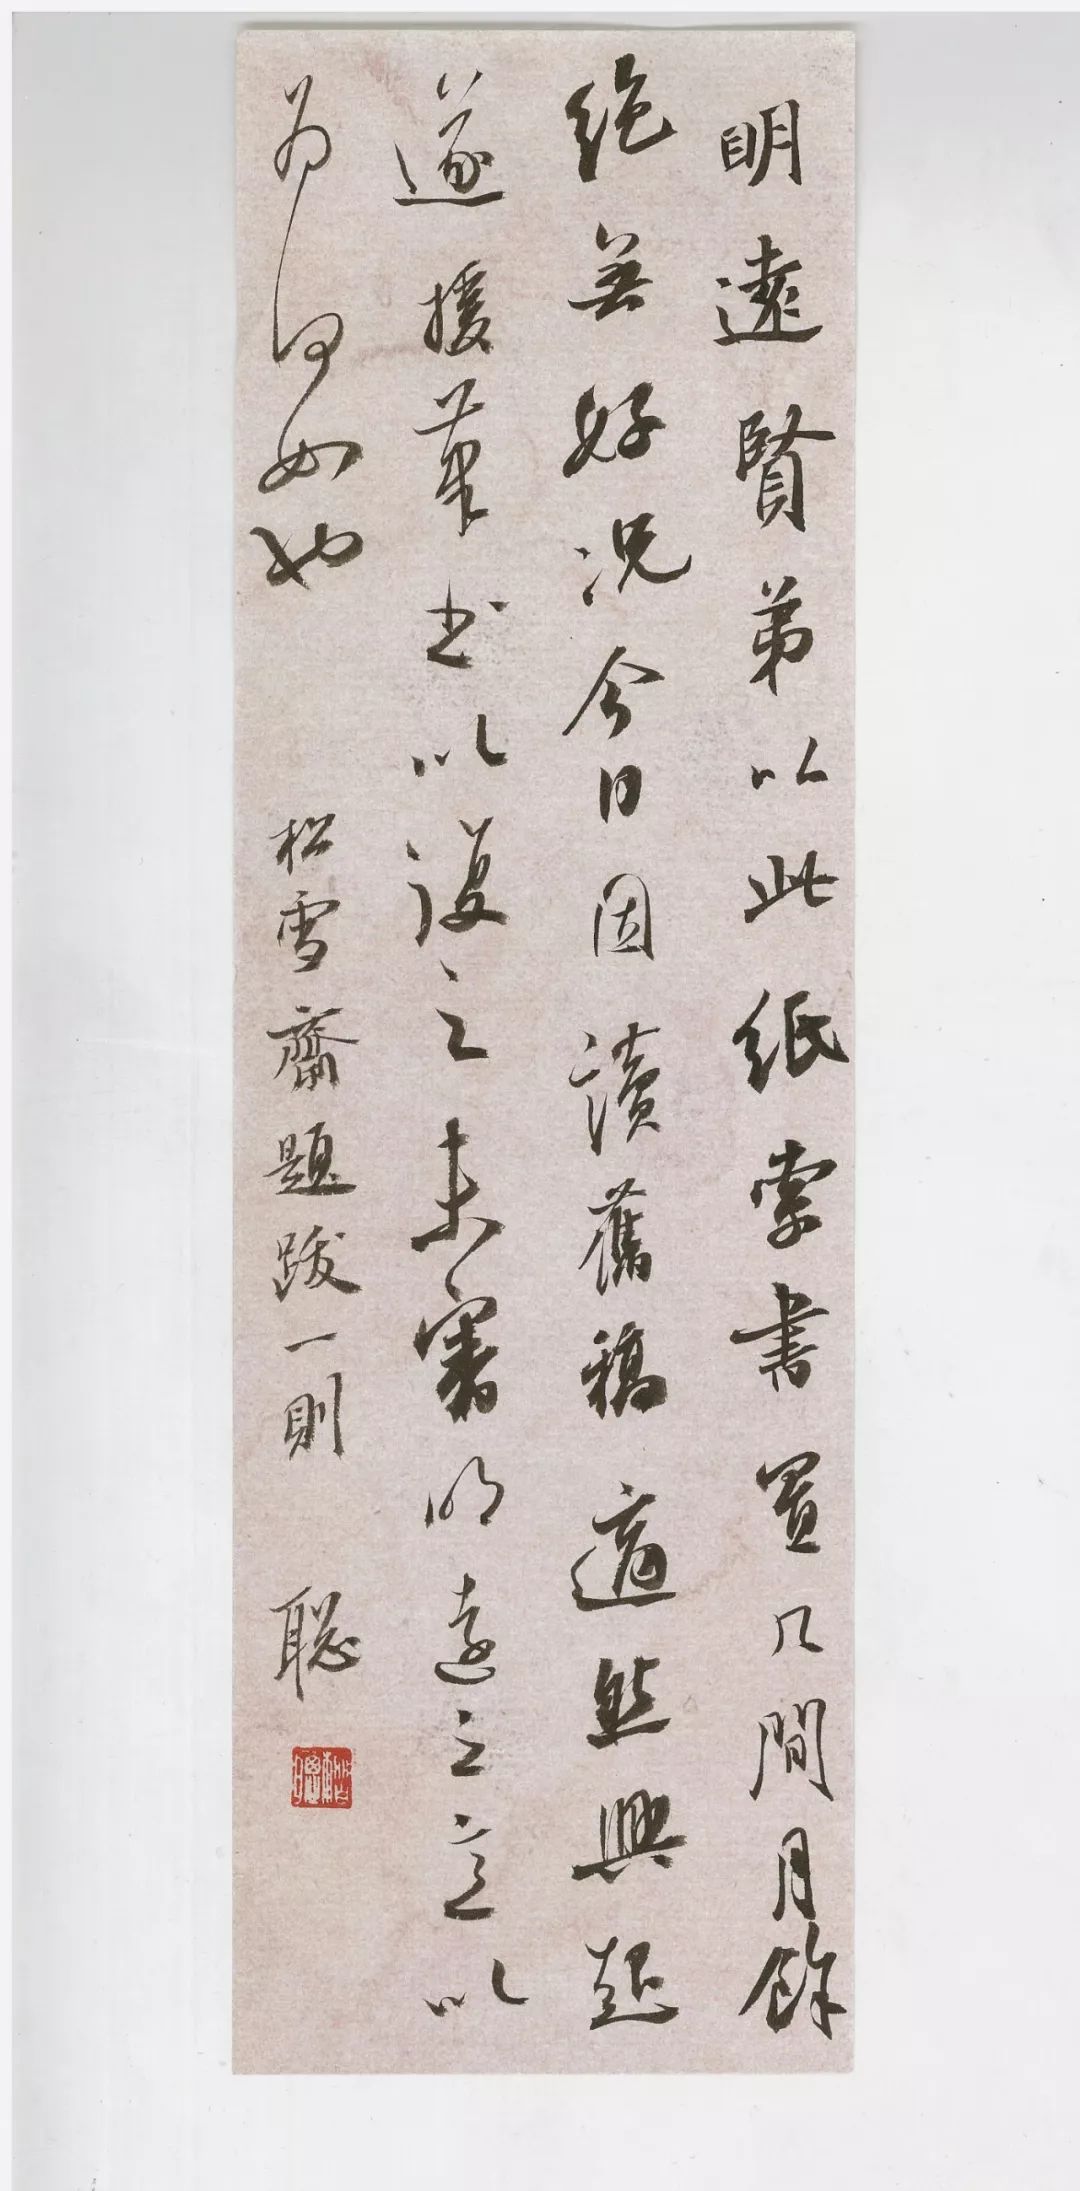 明遠賢弟以此紙索書置几間月餘
絶無好況今日因讀舊稿適然興起
遂援筆书以復之未審明遠之意以
為何如也
松雪齋題跋一則 聪